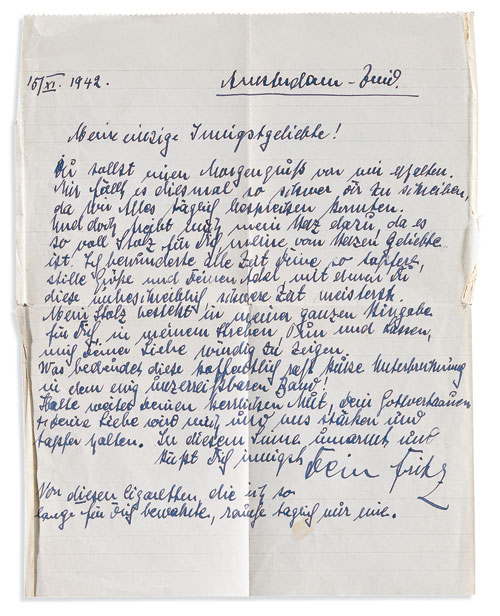 15/XI. 1942. Amsterdam-Zuid.
Meine einzige Innigstgeliebte!
Du sollst einen Morgengruß von mir erhalten.
Mir fällt es diesmal so schwer dir zu schreiben,
da wir Alles täglich besprechen konnten.
Und doch treibt mich mein Herz dazu, da es
so voll Stolz für Dich, meine von Herzen Geliebte
ist. Ich bewundere alle Zeit Deine so tapfere,
stille Größe und Deinen Adel mit denen Du
diese unbeschreiblich schwere Zeit meisterst.
Mein Stolz besteht in meiner ganzen Hingabe
für Dich, in meinem Streben, Tun und Lassen,
mich Deiner Liebe würdig zu zeigen.
Was bedeutet diese hoffentlich sehr kurze Unterbrechung
in dem ewig unzerreißbaren Band!
Halte weiter Deinen herrlichen Mut, Dein Gottvertrauen
+ deine Liebe wird mich und uns stärken und
tapfer halten. In diesem Sinne umarmt und
küßt Dich innigst Dein Fritz
Von diesen Cigaretten, die ich so
lange für Dich bewahrte, rauche täglich nur eine.